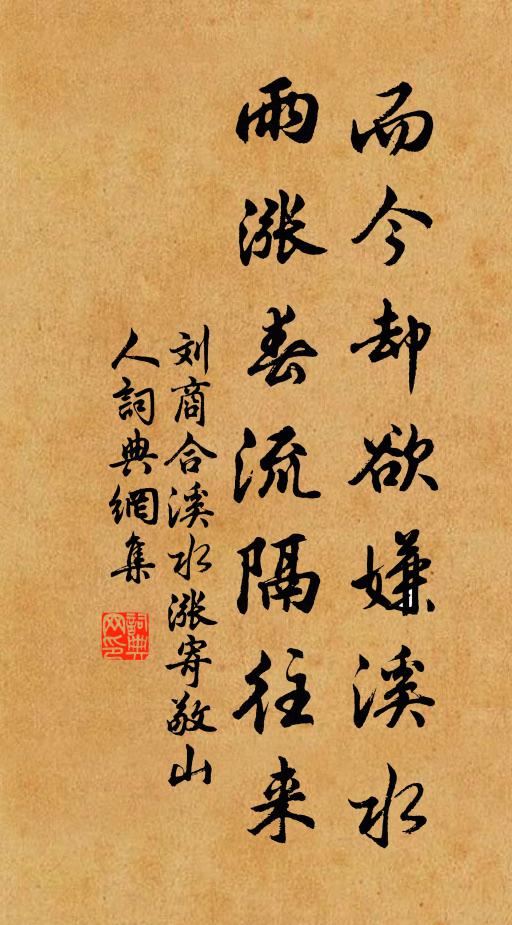 而今却欲嫌溪水
雨漲春流隔往来
刘商合溪水漲寄敬山
人詞典網集
詞典网印